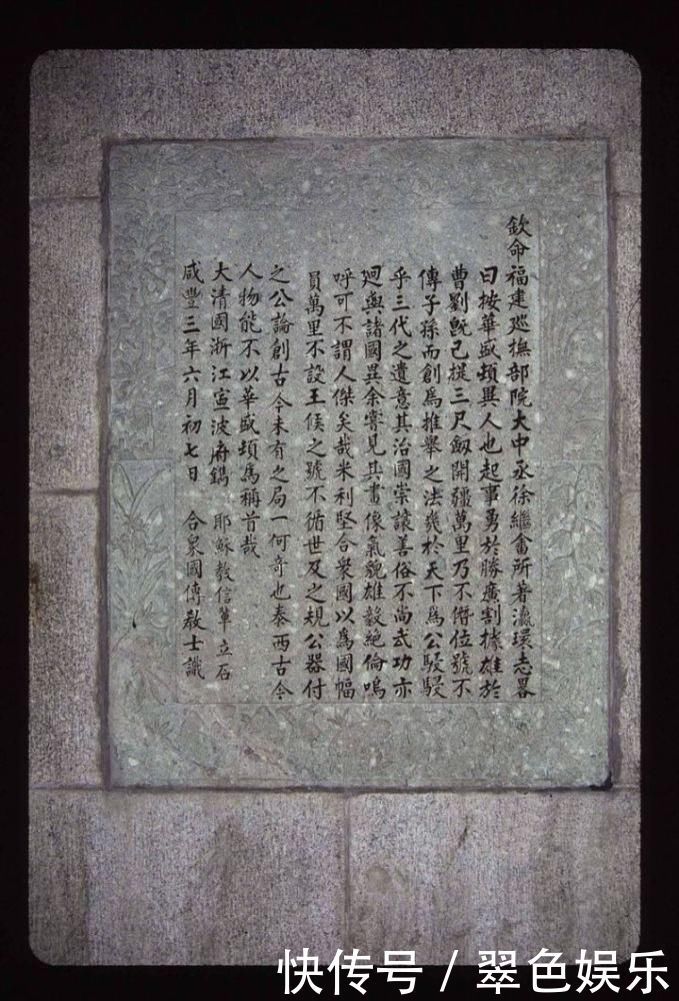 欽命福建巡撫部院大中丞徐繼畬所著瀛環志畧
曰按華盛頓異人也起事勇於勝廣割據雄於
曹劉既已提三尺劍開疆萬里乃不僭位號不
傳子孫而創為推舉之法幾於天下為公駸駸
乎三代之遺意其治國崇讓善俗不尚武功亦
迥與諸國異余嘗見其畫像氣貌雄毅絕倫嗚
呼可不謂人傑矣哉米利堅合衆國以為國幅
員萬里不設王侯之號不循世及之規公器付
之公論創古今未有之局一何奇也泰西古今
人物能不以華盛頓為稱首哉
大清國浙江寧波府鐫 耶穌教信輩 立石
咸豐三年六月初七日 合衆國傳教士識
快传号 / 翠色娱乐